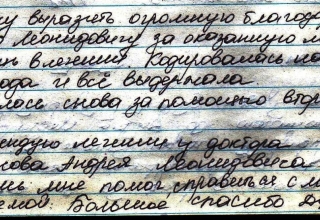 чу выразить огромную благода
Леонидовичу за оказанную
в лечении. Кодировалась
ода и всё выдержала
лась снова за помощью втор
лечения у доктора
нова Андрея Леонидовича
мне помог справиться с м
емой. Большое спасибо